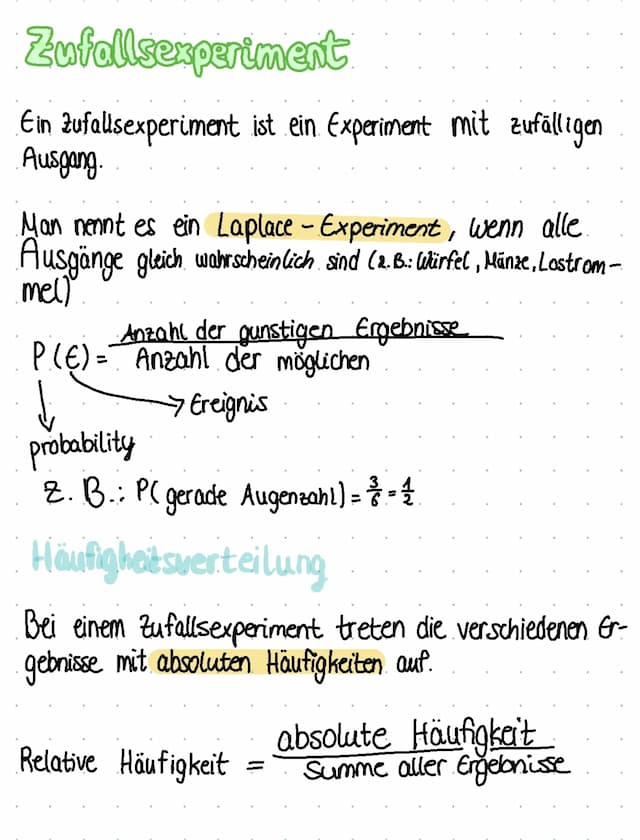 Zufallsexperiment
Ein Zufallsexperiment ist ein Experiment mit zufälligen
Ausgang.
Man nennt es ein Laplace-Experiment, wenn alle
Ausgänge gleich wahrscheinlich sind (z.B.: Würfel, Münze, Lostrom-
mel)
Anzahl der gunstigen Ergebnisse
P(E) = Anzahl der möglichen
→ Ereignis
probability
z. B.: P(gerade Augenzahl) = 3/6 = 1/2
Häufigkeitsverteilung
Bei einem Zufallsexperiment treten die verschiedenen Er-
gebnisse mit absoluten Häufigkeiten auf.
absolute Häufigkeit
Relative Häufigkeit =
Summe aller Ergebnisse